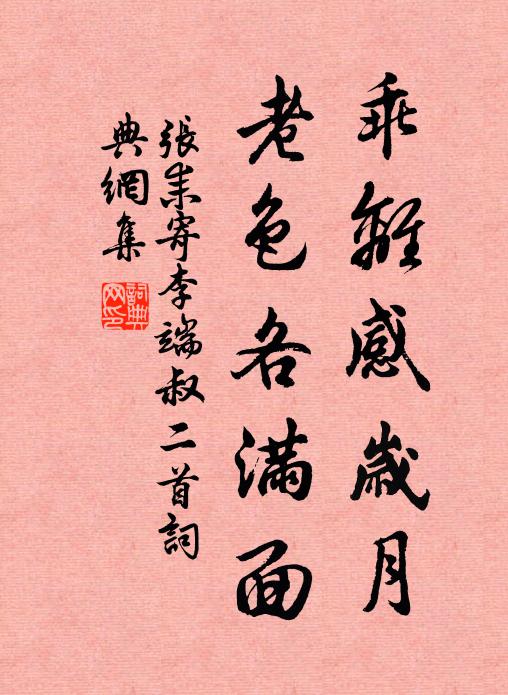 乖離感歲月
老色各滿面
張耒寄李端叔二首詞
典網集
詞典網印